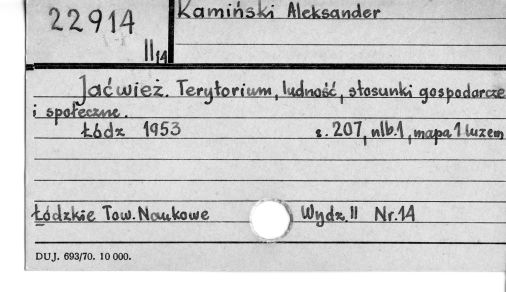 22914
II 14
Kamiński Aleksander
Jaćwież. Terytorium, ludność, stosunki gospodarcze
i społeczne.
Łódz 1953 s. 207, nlb.1, mapa 1 luzem
Łódzkie Tow. Naukowe Wydz. II Nr. 14
DUJ. 693/70. 10 000.